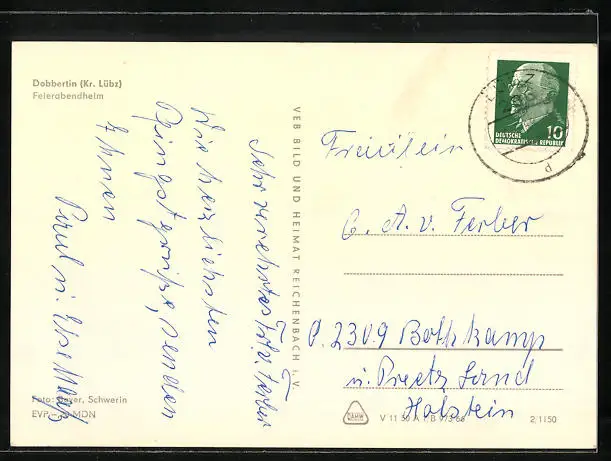 Dobbertin (Kr. Lübz)
Feierabendheim
Sehr verehrtes Frl. v. Ferber
Die herzlichsten
Pfingstgrüße, senden
Ihnen
Paul u. Else
VEB BILD UND HEIMAT REICHENBACH i. V.
DEUTSCHE
DEMOKRATISCHE REPUBLIK
10
Fräulein
C. A. v. Ferber
P. 2309 Bothkamp
ü. Preetz Land
Holstein
Foto: Beyer, Schwerin
EVP MDN
V 11 50 A 1/B 973/66
2/1150